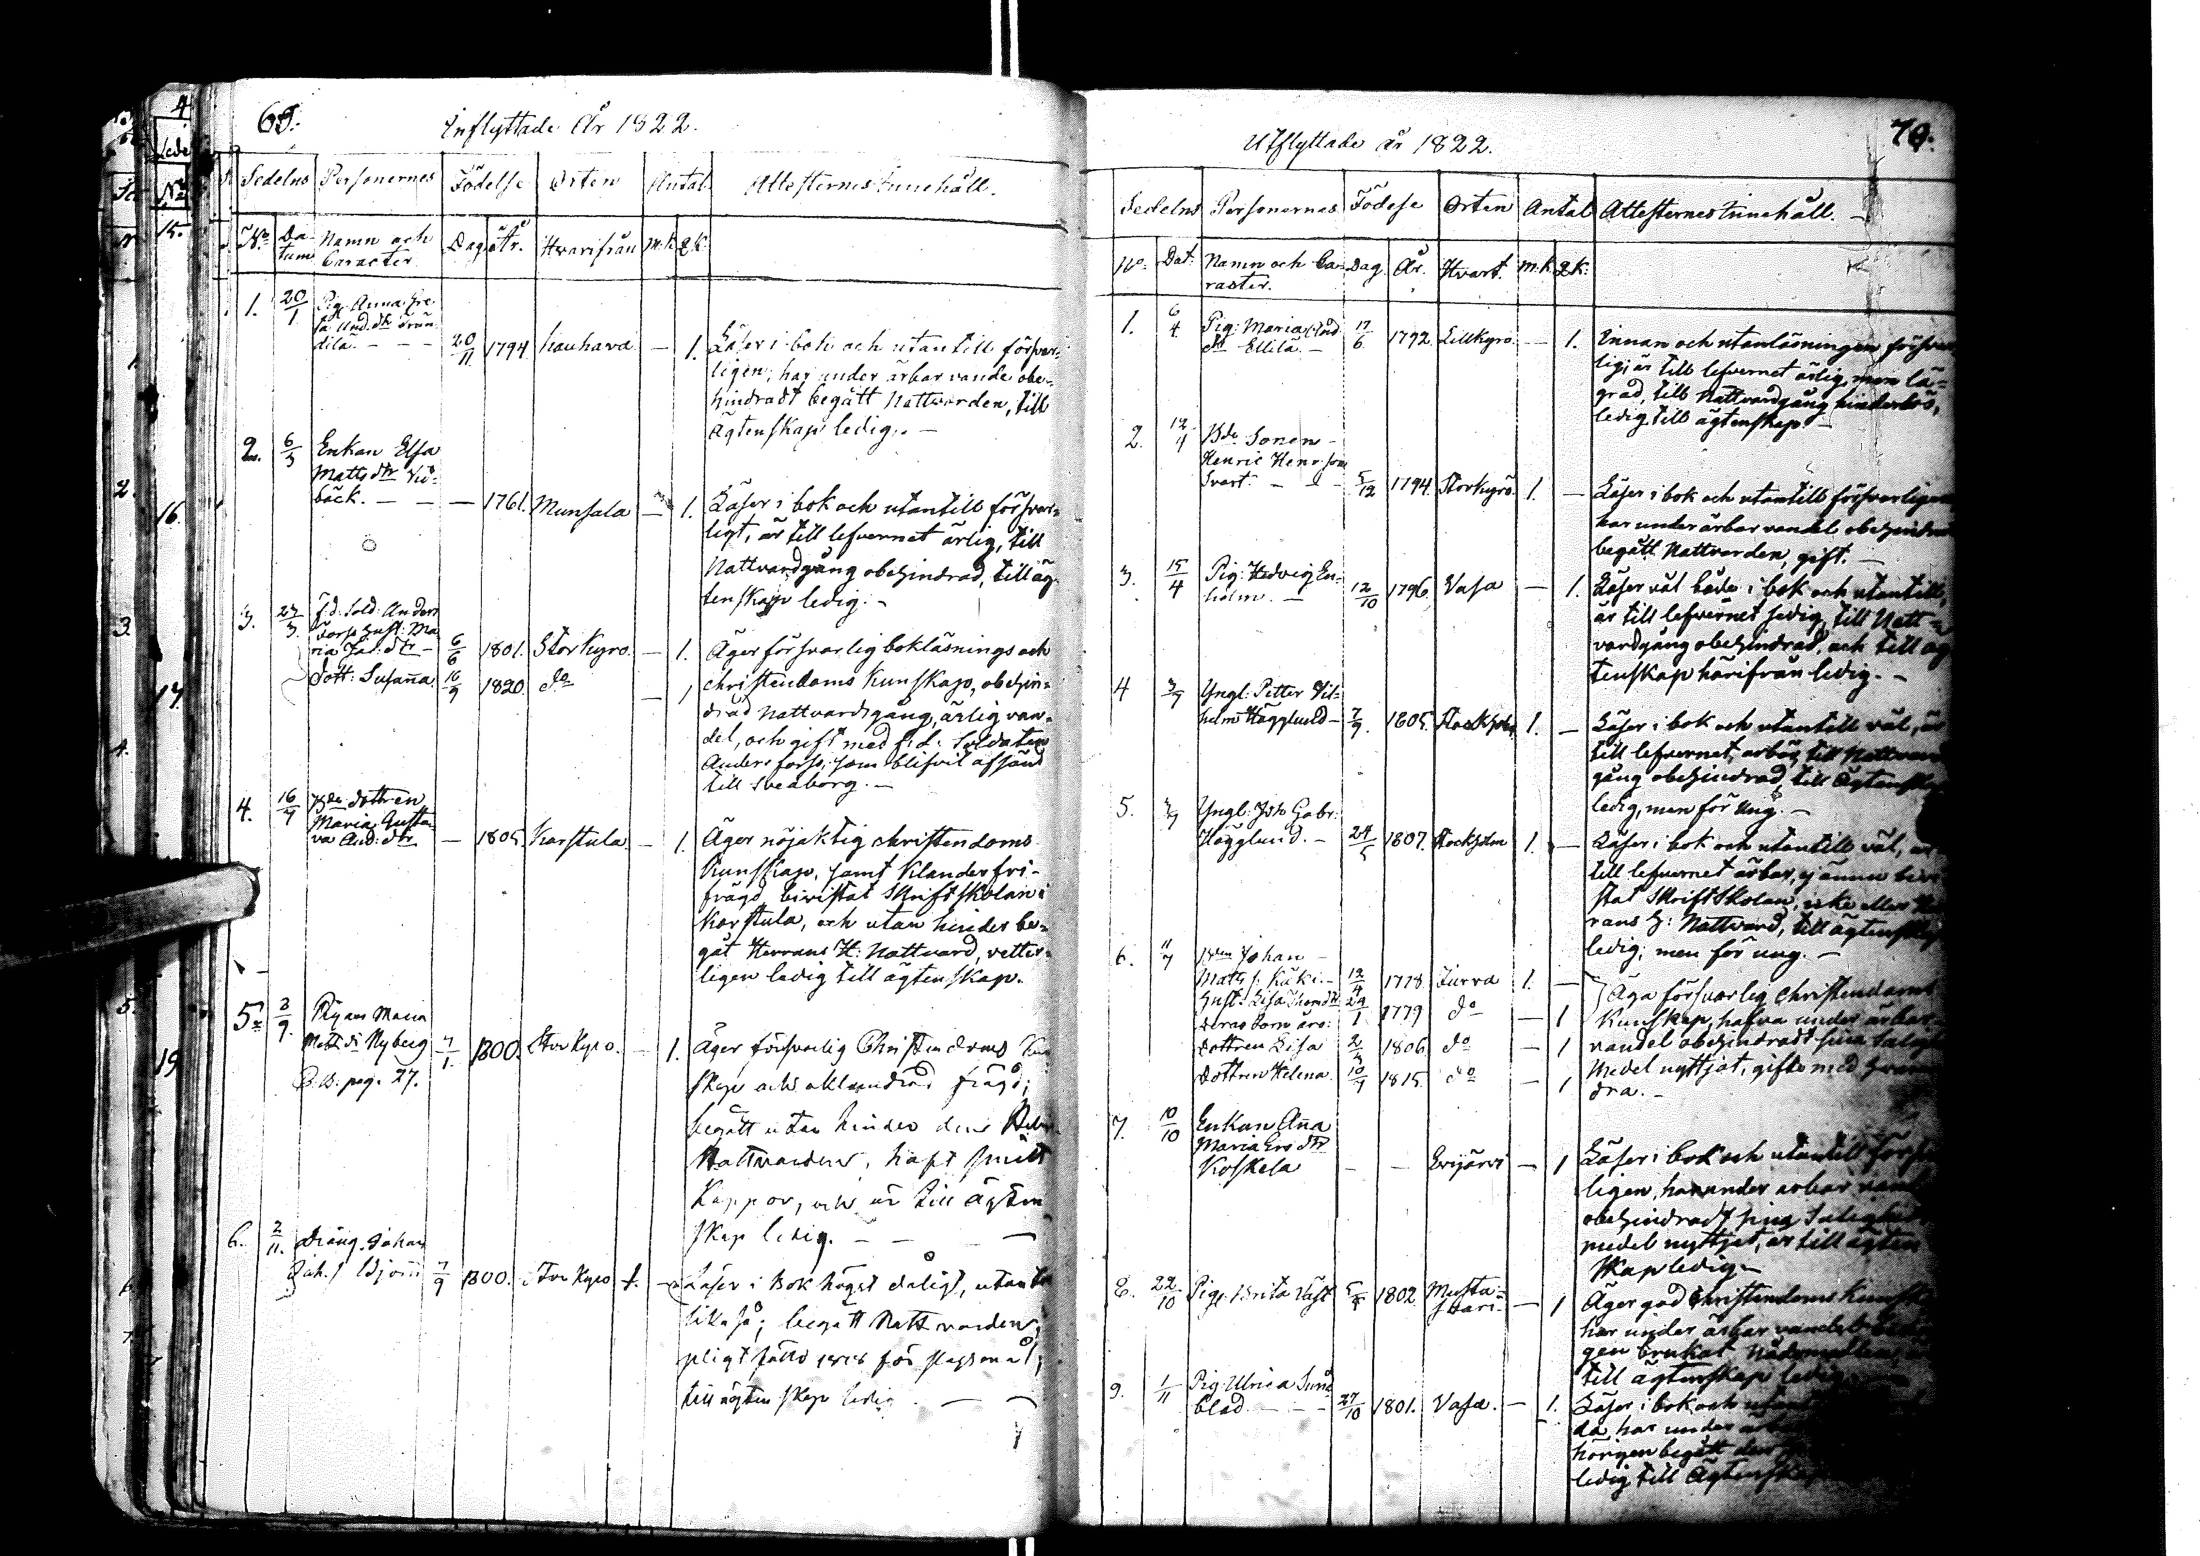 69.
Inflyttade År 1822.
Sedelns Personernes Födelse Orten Antal Attesternes Innehåll.
No Datum Namn och Caracter Dag År. Hvarifrån M.K. Q.K.
1. 20/1 Pig. Anna Gre
ta And. dtr
dilä. - - - 20/11 1794 Kauhava - 1. Läser i bok och utantill försvar=
ligen, har under ärbar vande obe=
hindradt begått Nattvarden, till
Ägtenskap ledig. -
2. 6/3 Enkan Elsa
Matts dtr Vid=
bäck. - - - 1761. Munsala - 1. Läser i bok och utantill försvar=
ligt, är till lefvernet ärlig, till
Nattvardgång obehindrad, till äg=
tenskap ledig. -
3. 23/3. f.d. Sold. Anders
Fors Hust: Ma
ria Jac. dtr - 6/6 1801. Storkyro. - 1. Äger försvarlig bokläsnings och
Dott: Susanna. 16/9 1820. do - 1 christendoms Kunskap, obehin=
drad Nattvardsgång, ärlig van=
del, och gift med f.d. Soldaten
Anders Fors, som blifvit afsänd
till Sveaborg. -
4. 16/4 Bde dottren
Maria Gusta
va And. dtr - 1805. Karstula. - 1. Äger nöjaktig christendoms
Kunskap, samt Klanderfri
frägd, bivistat Skriftskolan i
Karstula, och utan hinder be=
gåt Herrans H: Nattvard, vetter=
ligen ledig till ägtenskap.
5. 2/9. Pigan Maria
Matts dr Nyberg 7/1. 1800. Stor Kyro. - 1. Äger försvarlig Christendoms Kun
C.B. pag. 27. skap och oklandrad frägd;
begått utan hinder den
Nattvarden, haft
Kappor, och är till Ägten
skap ledig. - - -
6. 2/11. Dräng. Johan
Joh. s. 7/9 1800. Stor Kyro 1. - Läser i Bok högst dåligt, utantill
likaså; begått Nattvarden,
pligt för slagsmål,
till ägtenskap ledig. - -
70.
Utflyttade år 1822.
Sedelns Personernes Födese Orten Antal Attesternes Innehåll. -
No. Dat: Namn och Ca=
racter. Dag. År. Hvart. M.K. Q.K.
1. 6/4 Pig: Maria And
dtr Ellilä. - 17/6 1792. Lillkyro. - 1. Innan och utanläsningen försvar
lig, är till lefvernet ärlig, men lä=
grad, till Nattvardgång hinderlös,
ledig till ägtenskap. -
2. 12/4 Bde Sonen -
Henric Henr. son
Svart. - - 5/12 1794. Storkyro 1. - Läser i bok och utantill försvarligen
har under ärbar vandel obehindrad
begått Nattvarden, gift. -
3. 15/4 Pig: Hedvig En=
holm. - 12/10 1796. Vasa - 1. Läser väl både i bok och utantill,
är till lefvernet sedig, till Natt=
vardgång obehindrad, och till äg
tenskap härifrån ledig. -
4 3/7 Yngl: Petter Vil=
helm Hägglund - 7/9. 1805. Stockholm 1. - Läser i bok och utantill väl, är
till lefvernet ärbar, till Nattvard
gång obehindrad, till Ägtenskap
ledig, men för ung. -
5. 3/7 Yngl: Joh Gabr:
Hägglund. - 24/5 1807. Stockholm 1. - Läser i bok och utantill väl, är
till lefvernet ärbar, ej ännu bevi
stat Skriftskolan, icke eller Her
rans H: Nattvard, till ägtenskap
ledig, men för ung. -
6. 11/7 Bden Johan -
Matts s. Käki. - 12/4 1778. Jurva 1. - Äga försvarlig Christendoms
Hust: Lisa Thom dtr 29/1 1779 do - 1 Kunskap, hafva under ärbar
deras barn äro:
dottren Lisa 2/3 1806 do - 1 vandel obehindradt sina Salighets
dottren Helena. 10/9 1815. do - 1 Medel nyttjat, gifte med hvaran
dra. -
7. 10/10 Enkan Anna
Maria Ers dtr
Koskela - - Evijärvi - 1 Läser i bok och utantill försvar
ligen, har under ärbar vandel
obehindradt sina Salighets
medel nyttjat, är till ägten
skap ledig. -
8. 22/10 Pig. Brita Väst 5/8 1802. Musta=
saari. - - 1 Äger god Christendoms Kunskap
har under ärbar vandel
gen brukat Nådemedlen,
till ägtenskap ledig.
9. 1/11 Pig: Ulrica Sund
blad. - - - 27/10 1801. Vasa. - 1. Läser i bok och utant
da, har under
börigen begått den
ledig till Ägtenskap